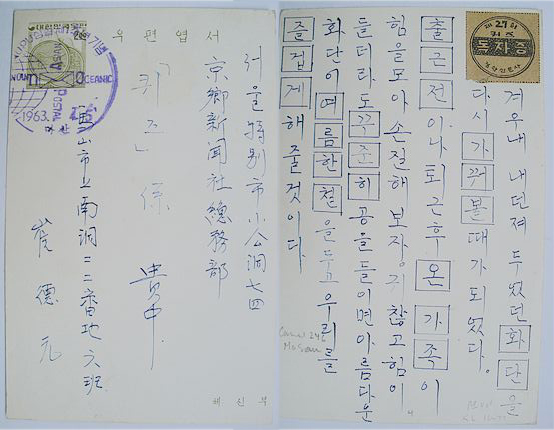 우편엽서
OCEANIC
POSTAL
1963.
서울特別市小公洞七四
京鄕新聞社總務部
「퀴즈」係 貴中
馬山市上南洞三三番地六班
崔德元
체신부
제27회
퀴즈
독자증
경향신문사
겨우내 내던져 두었던 화단을
다시 가꿔볼 때가 되었다.
출근전이나 퇴근후 온 가족이
힘을 모아 손질해 보자. 귀찮고 힘이
들더라도 꾸준히 공을 들이면 아름다운
화단이 여름한철을 두고 우리를
즐겁게 해 줄 것이다.
Masan